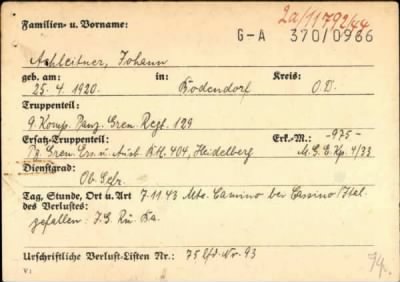 2a/11792/44
Familien- u. Vorname: G-A 370/0966
Achleitner, Johann
geb. am: in: Kreis:
25. 4. 1920. Bodendorf O.D.
Truppenteil:
9. Komp. Panz. Gren. Regt. 129
Ersatz-Truppenteil: Erk.-M.: -975-
Pz. Gren. Ers. u. Ausb. Btl. 404, Heidelberg M.G.E.Kp. 4/33
Dienstgrad:
Ob. Gefr.
Tag, Stunde, Ort u. Art 7.11.43 Mte. Camino bei Cassino/Ital.
des Verlustes:
gefallen: I.G.
Urschriftliche Verlust-Listen Nr.: 75 lfd. Nr. 93
V: